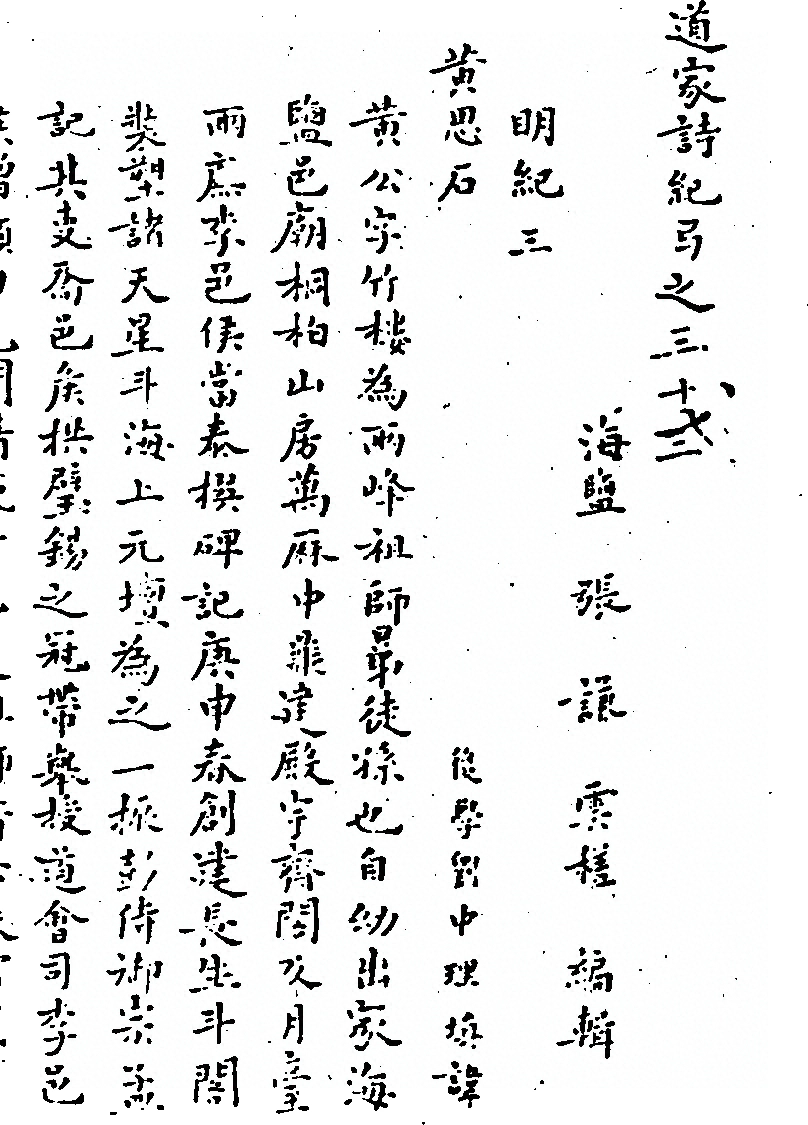 道家詩紀弓之三十七
海鹽 張謙 雲槎 編輯
明紀三
黄思石 從學劉中理填諱
黄公字竹楼為兩峰祖師弟徒孫也自幼出家海
鹽邑廟桐柏山房萬厤中鼎建殿宇齋閣及月臺
兩廡李邑侯當泰撰碑記庚申春創建長生斗閣
裝塑諸天星斗海上元壇為之一振彭侍御宗孟
記其事喬邑矦拱璧錫之冠帶舉授道會司李邑